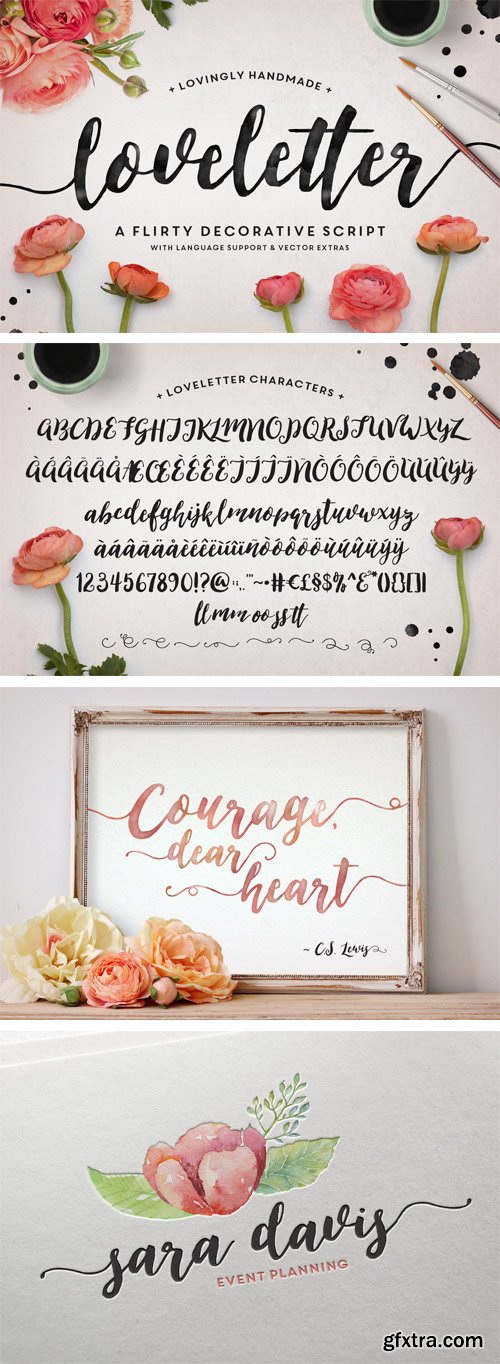 + LOVINGLY HANDMADE +
loveletter
A FLIRTY DECORATIVE SCRIPT
WITH LANGUAGE SUPPORT & VECTOR EXTRAS
+ LOVELETTER CHARACTERS +
ABCDEFGHIJKLMNOPQRSTUVWXYZ
ÀÁÂÃÄÅÆŒÈÉÊËÌÍÎÏÑÒÓÔÕÖÙÚÛÜÝŸ
abcdefghijklmnopqrstuvwxyz
àáâãäåèéêëìíîïñòóôõöùúûüýÿ
ll mm oo ss tt
Courage,
dear
heart
~ C.S. Lewis
sara davis
EVENT PLANNING
gfxtra.com